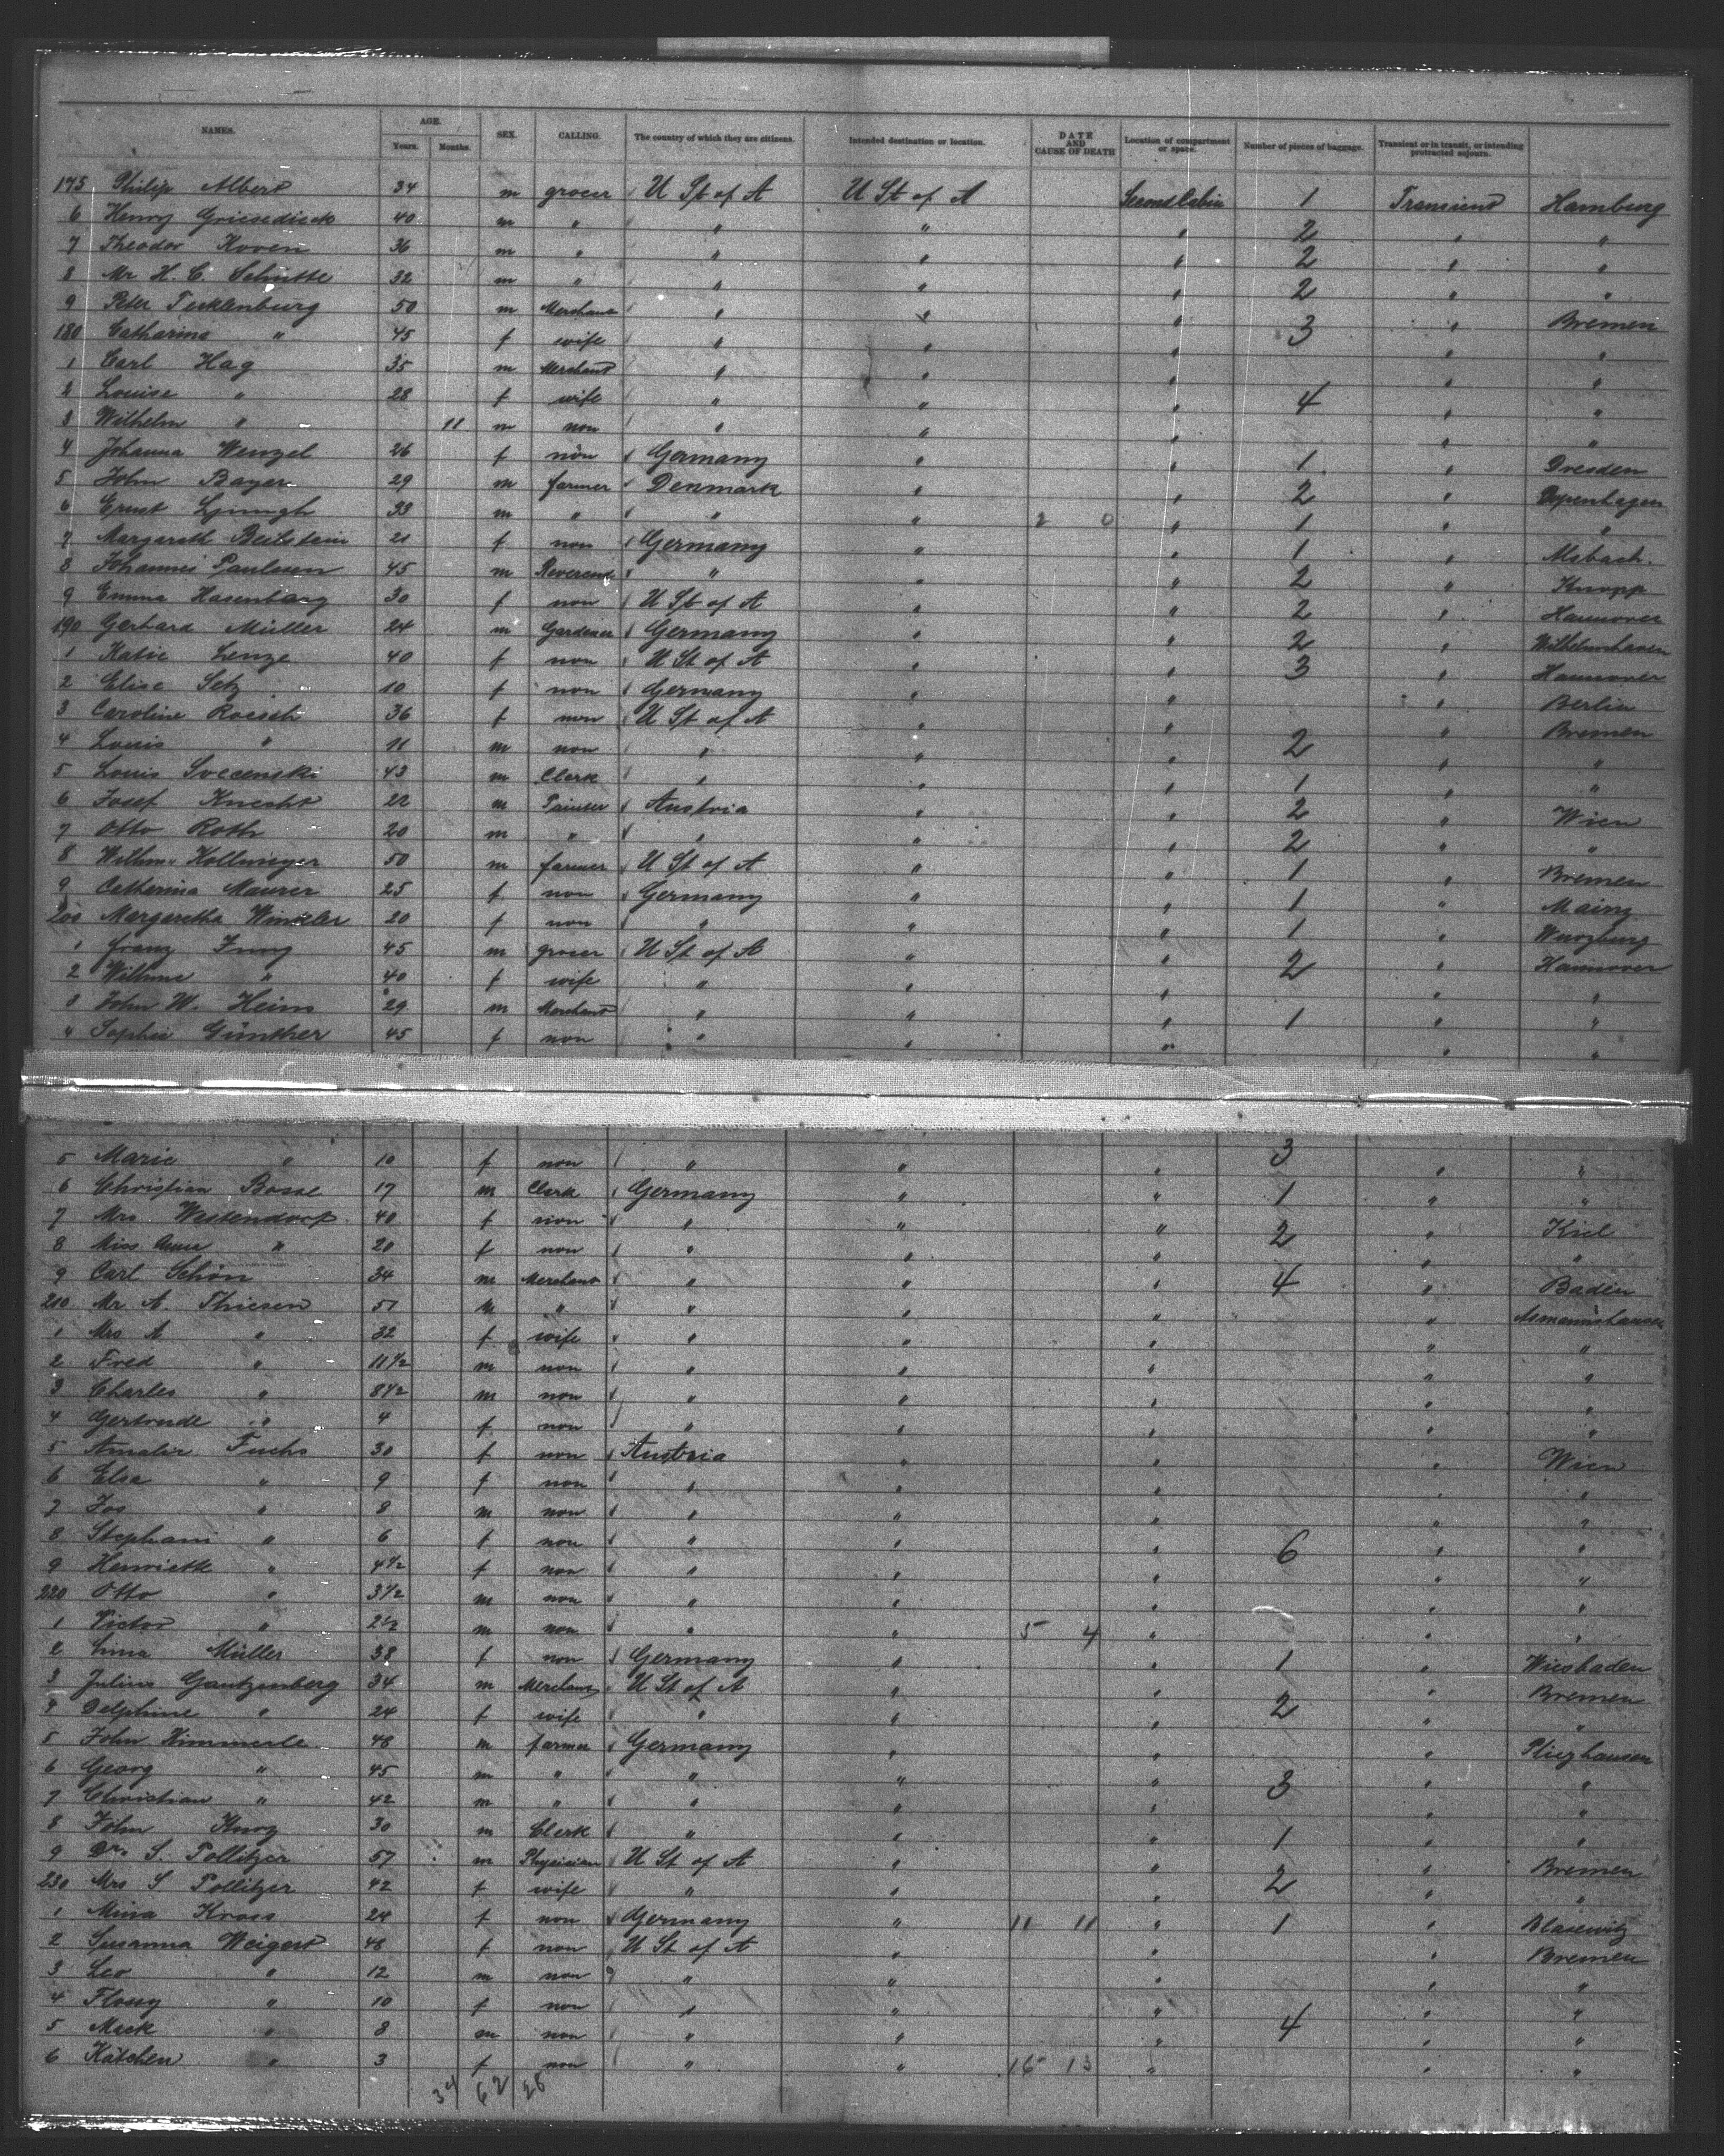 NAMES. AGE. SEX. CALLING. The country of which they are citizens. Intended destination or location. DATE AND CAUSE OF DEATH Location of compartment or space. Number of pieces of baggage. Transient or in transit, or intending protracted sojourn.
Years. Months.
175 Philip Albert 34 m grocer U St of A U St of A Second Cabin 1 Transient Hamburg
6 Henry Griesedieck 40 m " " " " 2 " "
7 Theodor Koven 36 m " " " " 2 " "
8 Mr H. C. Schutte 32 m " " " " 2 " "
9 Peter Tecklenburg 50 m Merchant " " " 3 " Bremen
180 Catharina " 45 f wife " " " " "
1 Carl Hag 35 m Merchant " " " " "
2 Louise " 28 f wife " " " 4 " "
3 Wilhelm " 11 m non " " " " "
4 Johanna Wenzel 26 f non Germany " " 1 " Dresden
5 John Bayer 29 m farmer Denmark " " 2 " Copenhagen
6 Ernst Ljungh 33 m " " " 2 0 " 1 " "
7 Margareth Beilstein 21 f non Germany " " 1 " Alsbach.
8 Johannes Paulssen 45 m Reverend " " " 2 " Knopp
9 Emma Hasenbarg 30 f non U St of A " " 2 " Hannover
190 Gerhard Müller 24 m Gardener Germany " " 2 " Wilhelmshaven
1 Katie Lenze 40 f non U St of A " " 3 " Hannover
2 Elise Setz 10 f non Germany " " " Berlin
3 Caroline Roesch 36 f non U St of A " " " Bremen
4 Louis " 11 m non " " " 2 " "
5 Louis Svecenski 43 m Clerk " " " 1 " "
6 Josef Knecht 22 m Painter Austria " " 2 " Wien
7 Otto Roth 20 m " " " " 2 " "
8 Wilhm Kollmeyer 50 m farmer U St of A " " 1 " Bremen
9 Catherina Maurer 25 f non Germany " " 1 " Mainz
200 Margaretha Winkler 20 f non " " " 1 " Wurzburg
1 Franz Jung 45 m grocer U St of A " " 2 " Hannover
2 Wilhme " 40 f wife " " " " "
3 John W. Heins 29 m Merchant " " " 1 " "
4 Sophie Günther 45 f non " " " " "
5 Marie " 10 f non " " " 3 " "
6 Christian Bosse 17 m Clerk Germany " " 1 " "
7 Mrs Westendorf 40 f non " " " 2 " Kiel
8 Miss Anna " 20 f non " " " " "
9 Carl Schön 34 m Merchant " " " 4 " Baden
210 Mr A. Thiesen 51 m " " " " " Asmannshausen
1 Mrs A " 32 f wife " " " " "
2 Fred " 11 1/2 m non " " " " "
3 Charles " 8 1/2 m non " " " " "
4 Gertrude " 4 f non " " " " "
5 Amalie Fuchs 30 f non Austria " " " Wien
6 Elsa " 9 f non " " " " "
7 Jos " 8 m non " " " " "
8 Stephani " 6 f non " " " 6 " "
9 Henriette " 4 1/2 f non " " " " "
220 Otto " 3 1/2 m non " " " " "
1 Victor " 2 1/2 m non " " 5 4 " " "
2 Lina Müller 38 f non Germany " " 1 " Wiesbaden
3 Julius Gantzenberg 34 m Merchant U St of A " " " Bremen
4 Delphine " 24 f wife " " " 2 " "
5 John Kimmerle 48 m farmer Germany " " " Pliezhausen
6 Georg " 45 m " " " " 3 " "
7 Christian " 42 m " " " " " "
8 John Kurz 30 m Clerk " " " 1 " "
9 Dr. S. Pollitzer 57 m Physician U St of A " " " Bremen
230 Mrs S Pollitzer 42 f wife " " " 2 " "
1 Mina Kross 24 f non Germany " 11 11 " 1 " Blasewitz
2 Susanna Weigert 48 f non U St of A " " " Bremen
3 Leo " 12 m non " " " " "
4 Flossy " 10 f non " " " " "
5 Mack " 8 m non " " " 4 " "
6 Kätchen " 3 f non " " 16 13 " " "
34 62 28